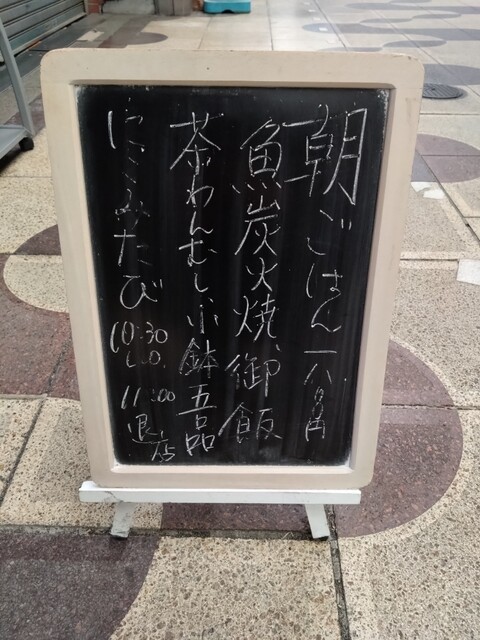 朝ごはん 一八〇〇円
魚炭火焼 御飯
茶わんむし 小鉢五品
にこみたび
10:30
L.O.
11:00
退店